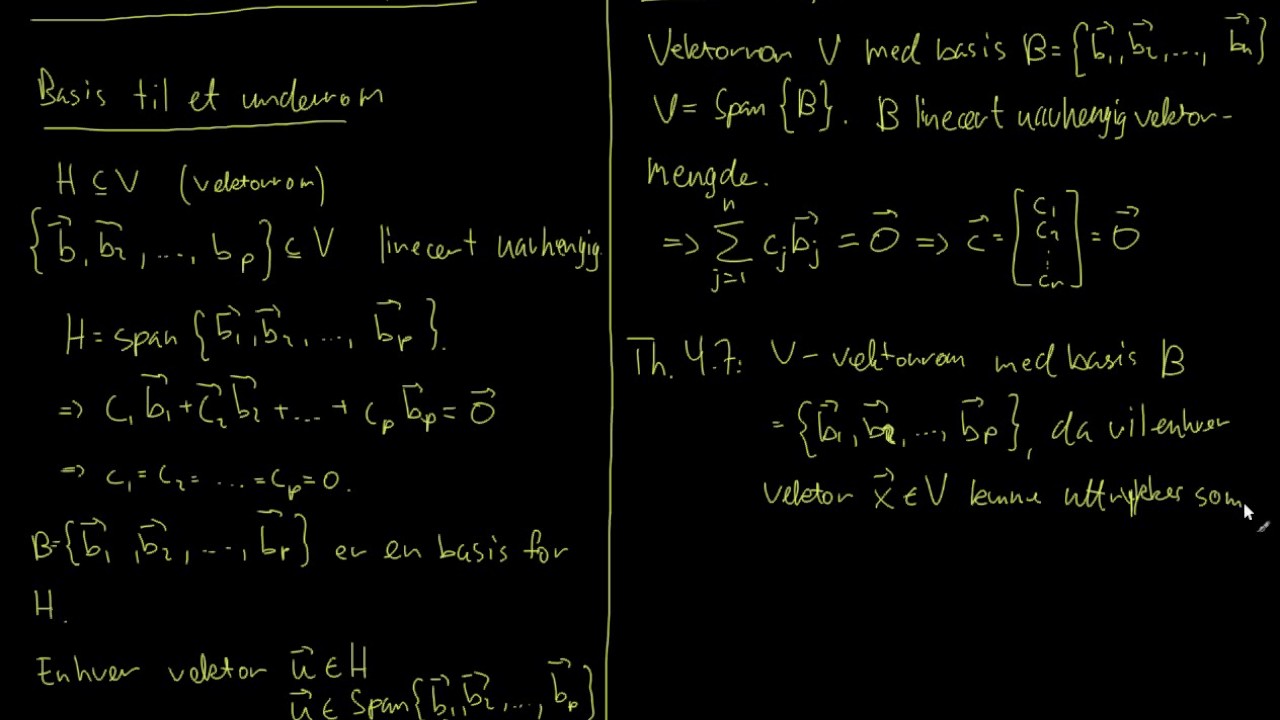 Basis til et underrom
H ⊆ V (vektorrom)
{b⃗, b⃗₂, ..., b_p} ⊆ V lineært uavhengig.
H = span {b⃗₁, b⃗₂, ..., b⃗_p}.
=> c₁b⃗₁ + c⃗₂b⃗₂ + ... + c_p b⃗_p = 0⃗
=> c₁ = c₂ = ... = c_p = 0.
B = {b⃗₁, b⃗₂, ..., b⃗_p} er en basis for
H.
Enhver vektor u⃗ ∈ H
u⃗ ∈ Span{b⃗₁, b⃗₂, ..., b⃗_p}
Vektorrom V med basis B = {b⃗₁, b⃗₂, ..., b⃗ₙ}
V = Span {B}. B lineært uavhengig vektor-
mengde.
=> ∑_{j=1}^{n} c_j b⃗_j = 0⃗ => c⃗ = [c₁ c₂ ⋮ cₙ] = 0⃗
Th. 4.7: V - vektorrom med basis B
= {b⃗₁, b⃗₂, ..., b⃗_p}, da vil enhver
vektor x⃗ ∈ V kunne uttrykkes som